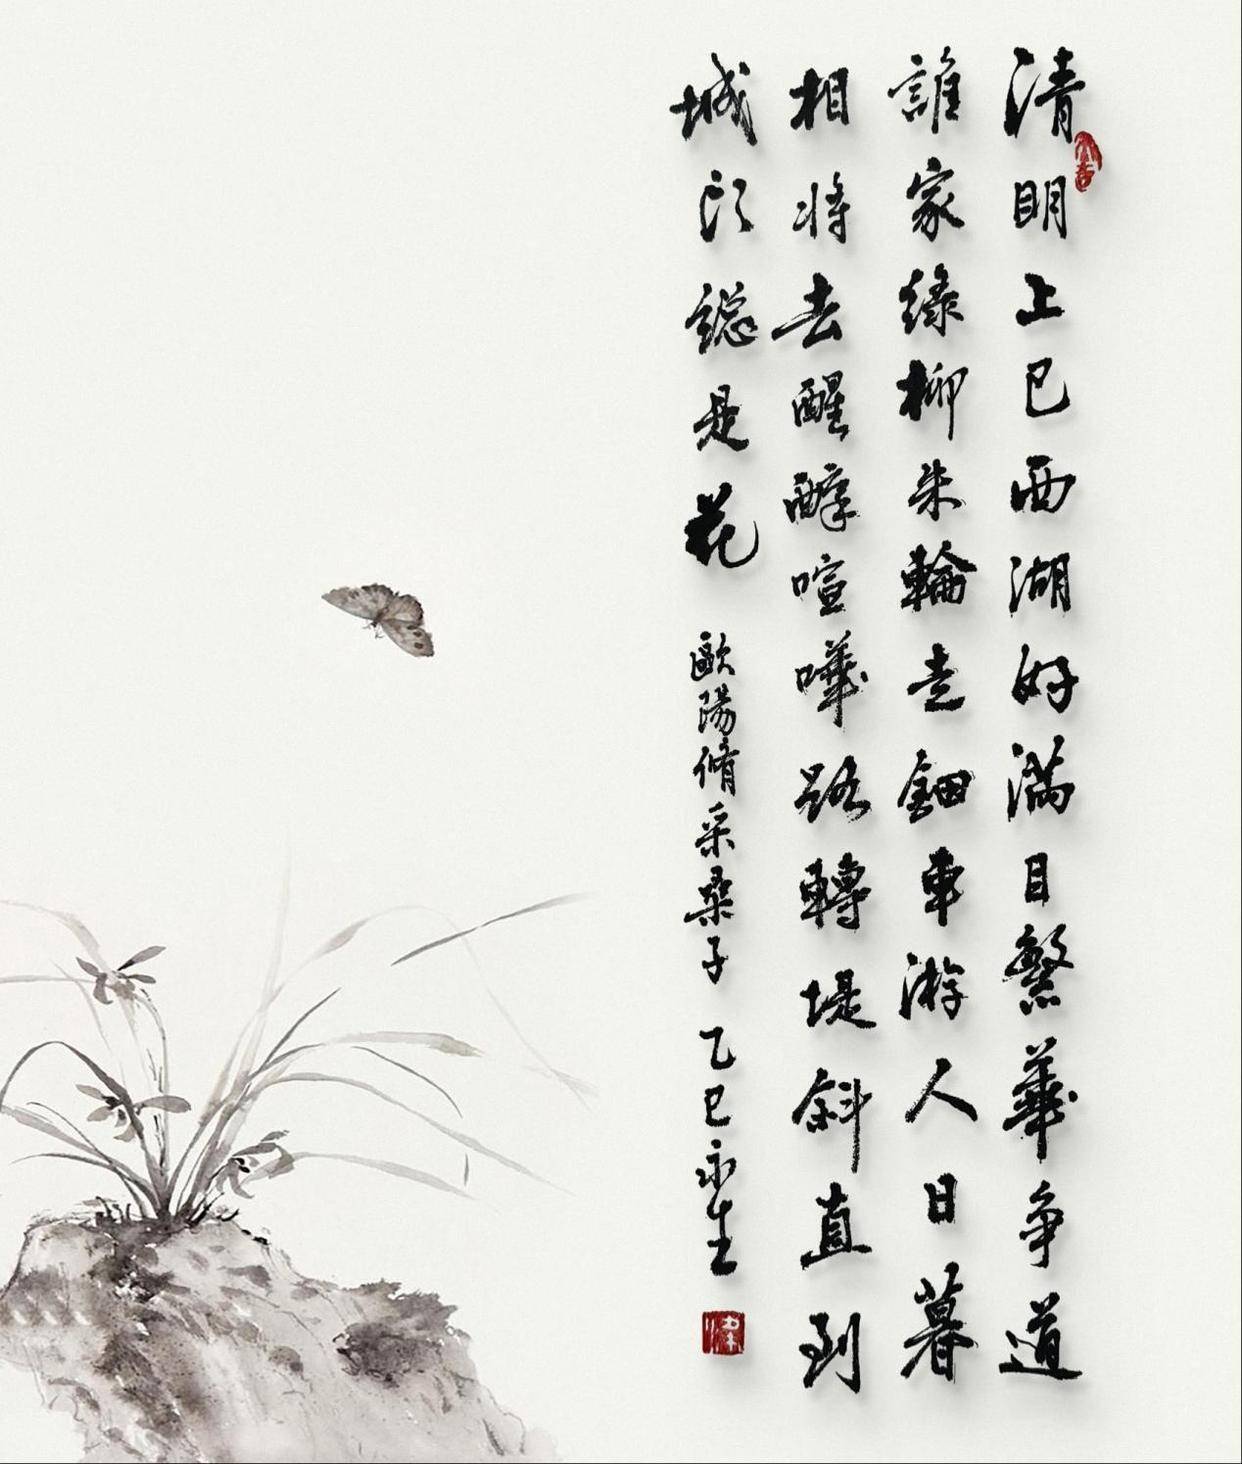 清明上巳西湖好滿目繁華争道
誰家綠柳朱輪走鈿車游人日暮
相將去醒醉喧嘩路轉堤斜直到
城頭總是花 歐陽脩采桑子 乙巳永生